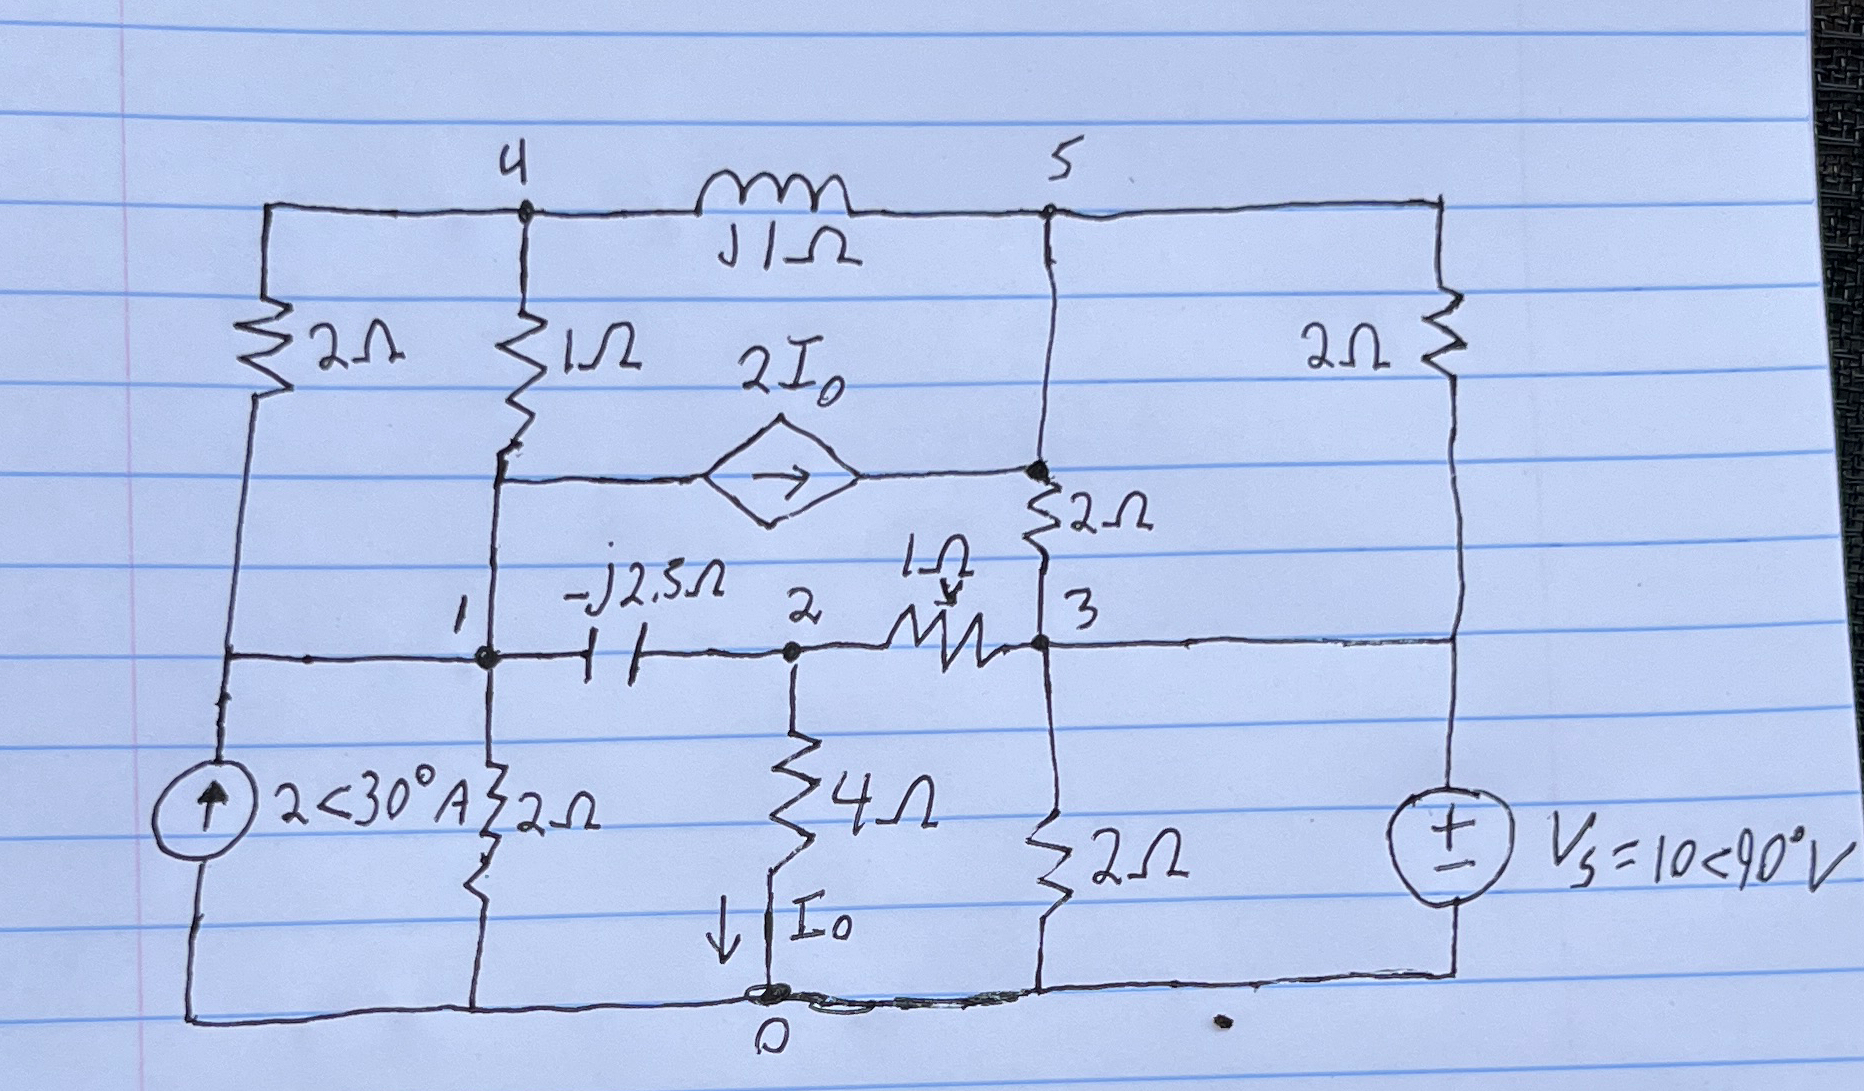 4 5
j1Ω
2Ω 1Ω 2I₀ 2Ω
2Ω
1Ω
-j2.5Ω
1 2 3
2<30°A 2Ω 4Ω 2Ω + - Vs=10<90°V
I₀
0